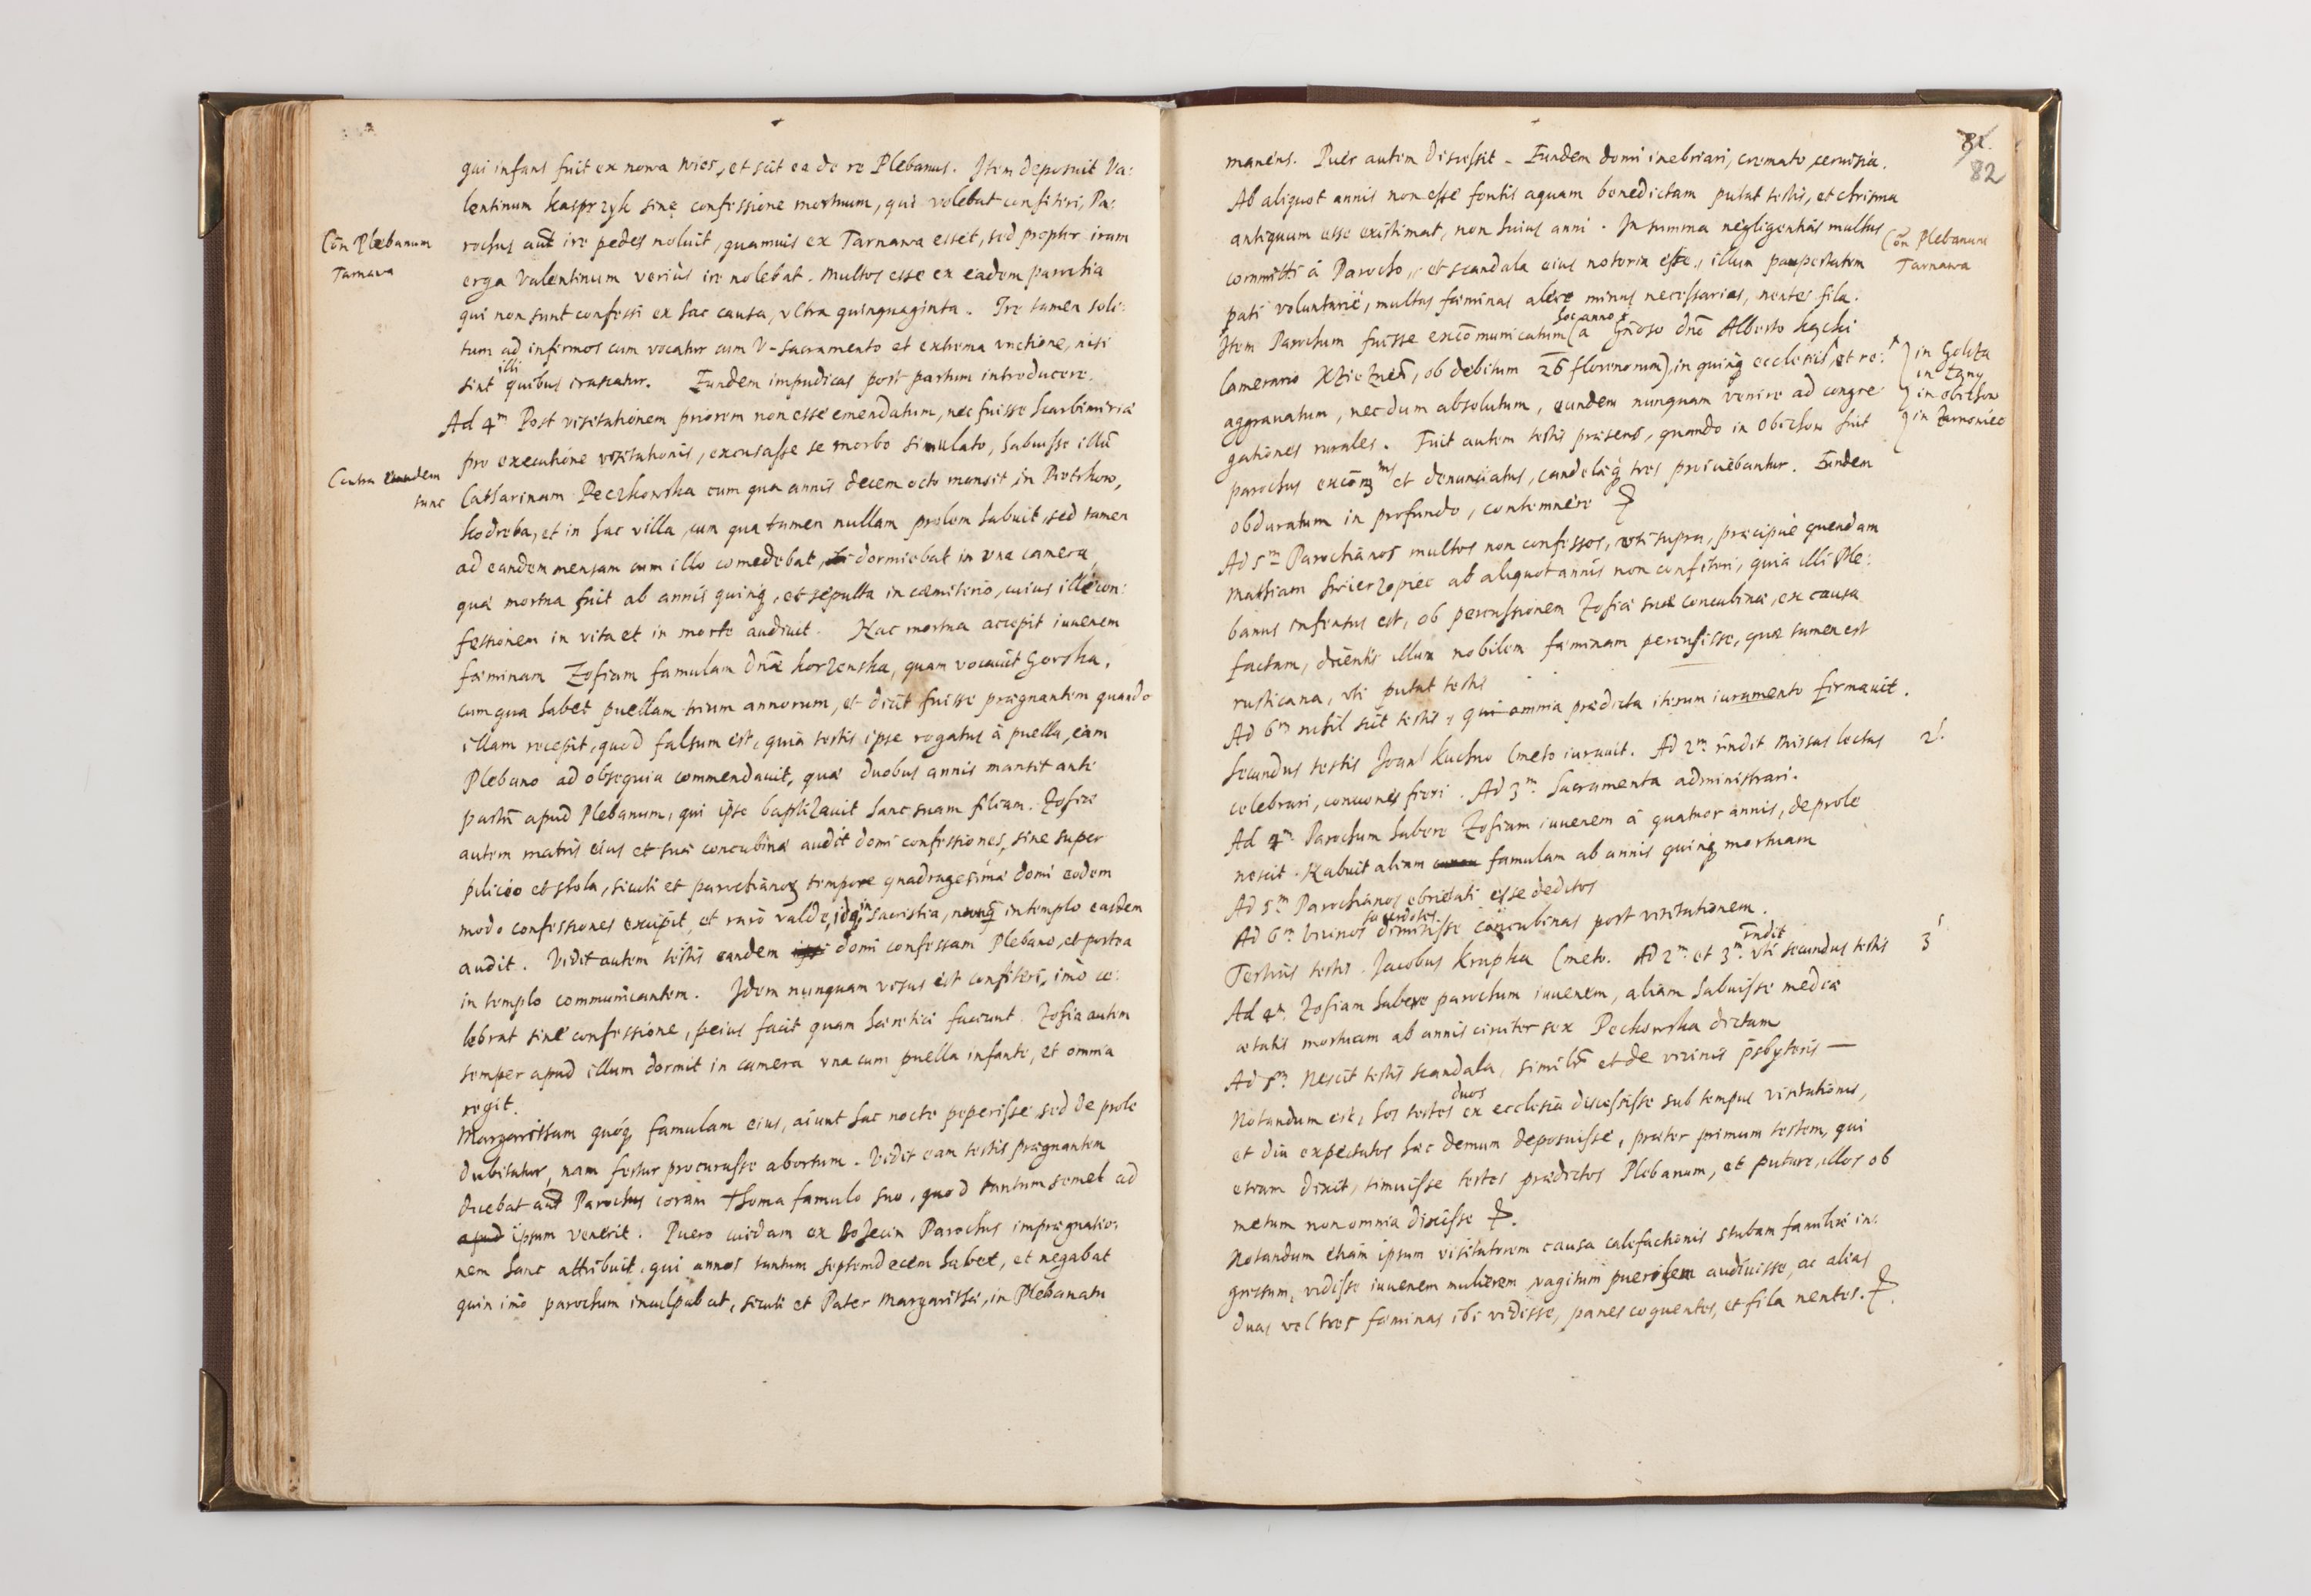 qui infans fuit ex nowa wies, et scit ea de re Plebanus. Item deposuit Va:
lentinum Kasprzyk sine confessione mortuum, qui volebat confiteri, Pa:
Cōn Plebanum
Tarnawa
rochus aūt ire pedes noluit, quamuis ex Tarnawa esset, sed propter iram
erga Valentinum verius ire nolebat. Multos esse ex eadem parochia
qui non sunt confessi ex hac causa, vltra quinquaginta. Ire tamen soli:
tum ad infirmos cum vocatur cum V-Sacramento et extrema vnctione, nisi
illi
sint quibus irascatur. Eundem impudicas post partum introducere.
Ad 4m Post visitationem priorem non esse emendatum, nec fuisse Scarbimiriæ
pro executione visitationis, excusasse se morbo simulato, habuisse illū
Contra eundem
tunc
Catharinam Peczkowska cum qua annis decem octo mansit in Piotrkow,
Kodreba, et in hac villa, cum qua tamen nullam prolem habuit, sed tamen
ad eandem mensam cum illo comedebat, dormiebat in vna camera,
quæ mortua fuit ab annis quinq, et sepulta in cæmiterio, cuius ille con:
fessionem in vita et in morte audiuit. Hac mortua accepit iuuenem
fæminam Zofiam famulam Dnæ Korzenska, quam vocauit Gorska,
cum qua habet puellam trium annorum, et dicit fuisse prægnantem quando
illam recepit, quod falsum est, quia testis ipse rogatus à puella, eam
Plebano ad obsequia commendauit, quæ duobus annis mansit ante
partū apud Plebanum, qui ipse baptizauit hanc suam filiam. Zofiæ
autem matris eius et suæ concubinæ audit domi confessiones, sine super
pilicio et stola, sicuti et parochianoꝝ tempore quadragesimæ domi eodem
modo confessiones excipit, et raro valde, idq, in sacristia, nunq̄ in templo easdem
audit. Vidit autem testis eandem domi confessam Plebano, et postea
in templo communicantem. Idem nunquam visus est confiteri, imò ce:
lebrat sine confessione, peius facit quam hæretici faciunt. Zofia autem
semper apud illum dormit in camera vna cum puella infante, et omnia
regit.
Margaritham quoq, famulam eius, aiunt hac nocte peperisse, sed de prole
dubitatur, nam fertur procurasse abortum. Vidit eam testis prægnantem
dicebat aūt Parochus coram Thoma famulo suo, quod tantum semel ad
apud ipsum venerit. Puero cuidam ex Parochus imprægnatio:
nem hanc attribuit, qui annos tantum septemdecem habet, et negabat
quin imò parochum inculpabat, sicuti et Pater Margarithæ, in Plebanatu
81.
82
manens. Puer autem discessit. Eundem domi inebriari, cremato, ceruisia.
Ab aliquot annis non esse fontis aquam benedictam putat testis, et chrisma
antiquum esse existimat, non huius anni. In summa negligentias multas
Cōn Plebanum
Tarnawa
committi à Parocho, et scandala eius notoria esse, illum paupertatem
pati voluntariè, multas fæminas alere minus necessarias, nentes fila.
hoc anno
Item Parochum fuisse excōmunicatum (a Gn̄oso dnō Alberto Kącki
Camerario Xziezneñ, ob debitum 26 florenorum), in quinq ecclesiis, et re:
in Golcza
in Tczyc
in Obichow
in Zarnowiec
aggrauatum, nec dum absolutum, eundem nunquam venire ad congre
gationes rurales. Fuit autem testis præsens, quando in Obichow fuit
parochus excōm et denunciatus, candelæq tres proiiciebantur. Eundem
obduratum in profundo, contemnere
Ad 5m Parochianos multos non confessos, vti supra, præcipuè quendam
Mathiam Swierzopiec ab aliquot annis non confiteri, quia illi Ple:
banus infensus est, ob percussionem Zofiæ suæ concubinæ, ex causa
factam, dicentis illum nobilem fæminam percussisse, quæ tamen est
rusticana, vti putat testis
Ad 6m nihil scit testis, qui omnia prædicta iterum iuramento firmauit.
Secundus testis Joanˢ Kuchno Cmeto iurauit. Ad 2m rn̄dit Missas lectas
2ˢ
celebrari, conciones fieri. Ad 3m Sacramenta administrari.
Ad 4m Parochum habere Zofiam iuuenem à quatuor annis, de prole
nescit. Habuit aliam famulam ab annis quinq mortuam
Ad 5m Parochianos ebrietati esse deditos
sacerdotes
Ad 6m Vicinos dimisisse concubinas post visitationem.
rn̄dit
Tertius testis Jacobus Krupka Cmeto. Ad 2m et 3m vti secundus testis
3ˢ
Ad 4m Zofiam habere parochum iuuenem, aliam habuisse mediæ
ætatis mortuam ab annis circiter sex Peckowska dictam
Ad 5m Nescit testis scandala, similr̄ et de vicinis p̄sbyteris —
duos
Notandum est, hos testes ex ecclesia discessisse sub tempus visitationis,
et diu expectatos hæc demum deposuisse, præter primum testem, qui
etiam dixit, timuisse testes prædictos Plebanum, et putare, illos ob
metum non omnia dixisse
Notandum etiam ipsum visitatorem causa calefactionis stubam familiæ in:
gressum, vidisse iuuenem mulierem, vagitum puerilem audiuisse, ac alias
duas vel tres fæminas ibi vidisse, panes coquentes, et fila nentes.